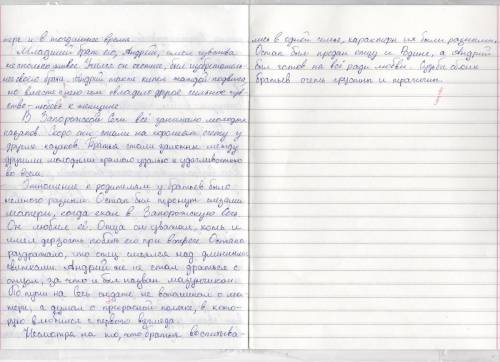 тере и в тогдашнее время.
Младший брат его, Андрий, имел чувства
несколько живее. Учился он охотнее, был изобретатель-
нее своего брата. Андрий также кипел жаждой подвига,
но вместе с нею им овладело другое сильное чув-
ство – любовь к женщине.
В Запорожской Сечи всё занимало молодых
казаков. Скоро они стали на хорошем счету у
других казаков. Братья стали заметны между
другими молодыми прямою удалью и удачливостью
во всём.
Отношение к родителям у братьев было
немного разным. Остап был тронут слезами
матери, когда ехал в Запорожскую Сечь.
Он любил её. Отца он уважал, хоть и
имел дерзость побить его при встрече. Остапа
раздражало, что отец смеялся над длинными
свитками. Андрий же не стал драться с
отцом, за что и был назван мазунчиком.
По пути на Сечь он даже не вспоминал о ма-
тери, а думал о прекрасной полячке, в кото-
рую влюбился с первого взгляда.
Несмотря на то, что братья воспитыва-
лись в одной семье, характеры их были разными.
Остап был предан отцу и Родине, а Андрий
был готов на всё ради любви. Судьба обоих
братьев очень грустна и трагична.